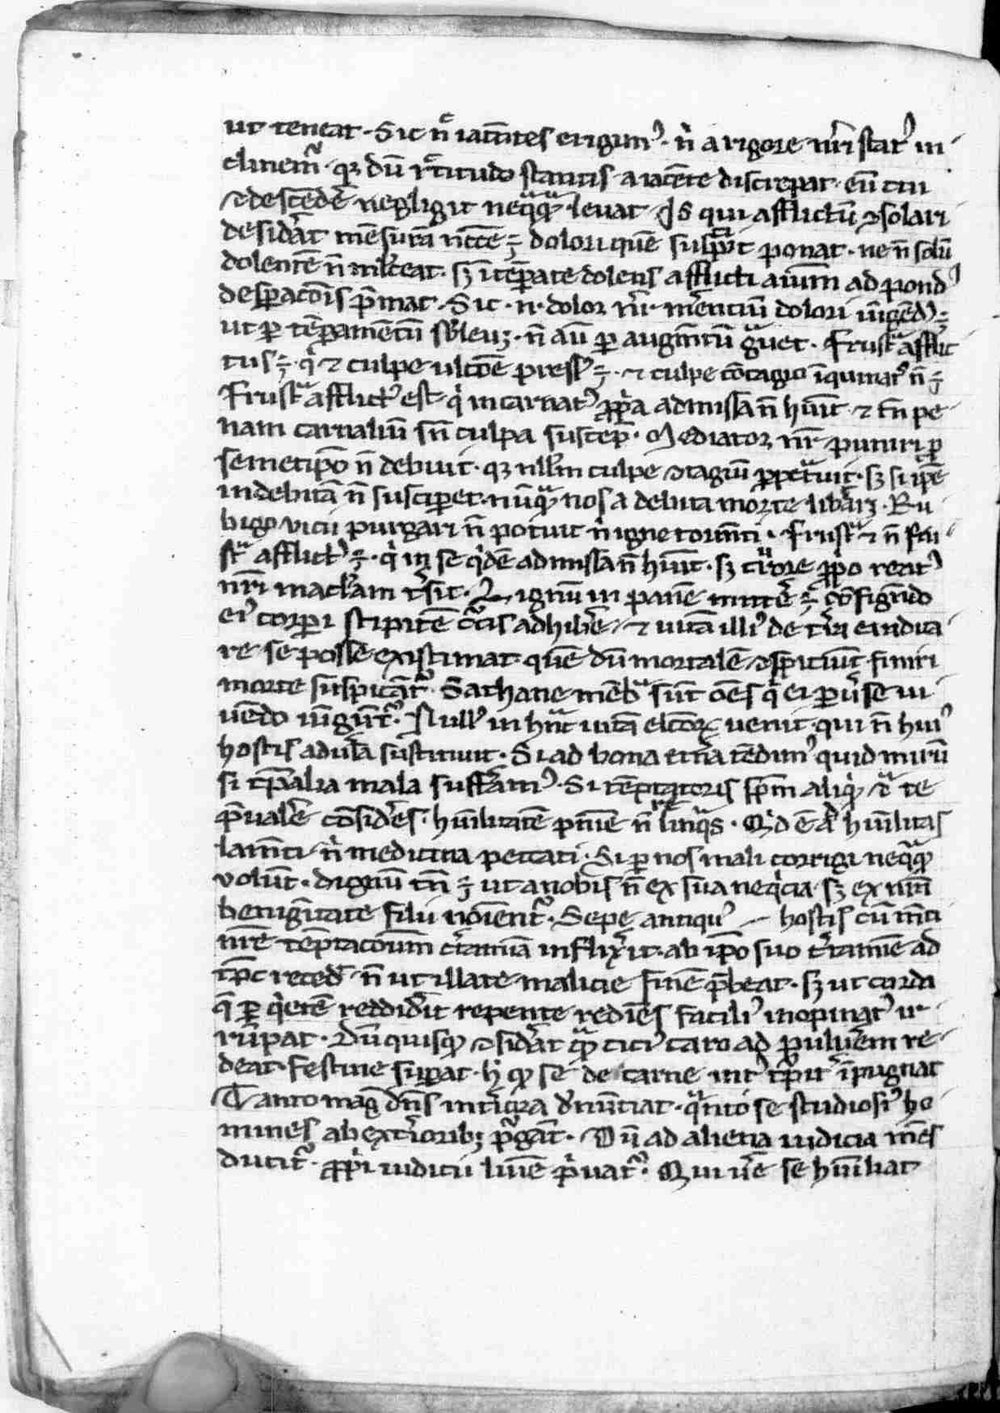 ut teneat. Sic nͨ iacentes erigimꝰ. nͥ a rigore nr̄i statꝰ in
clinemꝰ. qꝫ dū r̄titudo stantis a iacēte discrepat. cū cui
⁊ descēdē negligit neq̄q̄ levat. Is qui afflictū ꝯsolari
desid̾at mēsurā nēcē ÷ dolori quē suscip̾it ponat. ne n̄ solū
dolentē n̄ mulceat. sꝫ ītēꝑate dolens afflicti aīum ad pondꝰ
desꝑacōis p̄mat. Sic .n. dolor nr̄. mērentiū dolori iūgēdꝰ ÷
ut ꝑ tēꝑamentū sb̾levꝫ. n̄ aū ꝑ augm̄tū gͣvet. Frustͣ afflic
tus ÷. qͥ ⁊ culpe ulcōē pressꝰ ÷. ⁊ culpe cōtagio īquinatꝰ n̄ ÷
Frustͣ afflictꝰ est qͥ incarnatꝰ ꝓpͥa admissa n̄ h̾uit ⁊ tn̄ pe
nam carnaliū sn̄ culpa suscep̾. Mediator nr̄ puniri ꝑ
semetip̄o n̄ debuit. qꝫ nll̾m culpe ꝯtagiū ꝑpetͣvit. sꝫ si ip̄e
indebitā n̄ susciperet. nūqͣ nos a debita morte libarꝫ. Ru
bigo vicii purgari n̄ potuit nͥ igne torm̄ti. Frustͣ ⁊ n̄ fru
stͣ afflictꝰ ÷. qͥ in se qͥdē admissa n̄ h̾uit. sꝫ cͣore ꝓpͥo reatꝰ
nr̄i maclam t̾sit. Lignum in panē mittē̾ ÷ cōfigēdo
eiꝰ corꝑi stipitē cͨis adhibē̾. ⁊ vitā illiꝰ de t̾ra eradica
re se posse existimat. quē dū mortalē ꝯspiciunt finiri
morte suspicāt̾. Sathane mēbͣ sunt oēs qͥ ei ꝑv̾se vi
vendo iūgunt̾. Nullꝰ in hͣc vitā elcōꝝ venit. qui n̄ huiꝰ
hostis adv̾sa sustinuit. Si ad bona et̾na tēdimꝰ quid mirū
si tp̄alia mala suff̾amꝰ. Si temptatoris sp̄m aliqͥ ꝯͣ te
p̄valē̾ cōsid̾es. humilitatē pn̄ie n̄ relinqͣs. Qͥd ē .n. humilitas
lam̄ti nͥ medicina peccati. Si ꝑ nos mali corrigi neq̄q̄
volūt. dignū tn̄ ÷ ut a nobis n̄ ex sua neqͥcia. sꝫ ex nr̄a
benignitate filii noīent̾. Sepe antiquꝰ hostis cū m̄ti
nr̄e temptacōum c̾tamina inflix̾it. ab ip̄o suo c̾tamīe ad
tp̄c reced̾. n̄ ut illate malicie finē p̄beat. sꝫ ut corda
q̄ ꝑ qͥetē reddid̾it repente rediēs faciliꝰ inopinatꝰ ir
rūpat. Dū quisqꝫ ꝯsid̾at qͣ citiꝰ caro ad pulv̾em re
deat. festine surgat. hͥ qꝫ se de carne int̾ turpit̾ īpugnat
Tanto mag̾ dn̄s int̾iora d̾nuntiat. qͣnto se studiosiꝰ ho
mines ab ext̾ioribꝫ p̾gāt. Dū ad aliena iudicia mēs
ducit̾. ꝓpͥi iudicii lumē pͥvat̾. Qui v̾e se humiliat